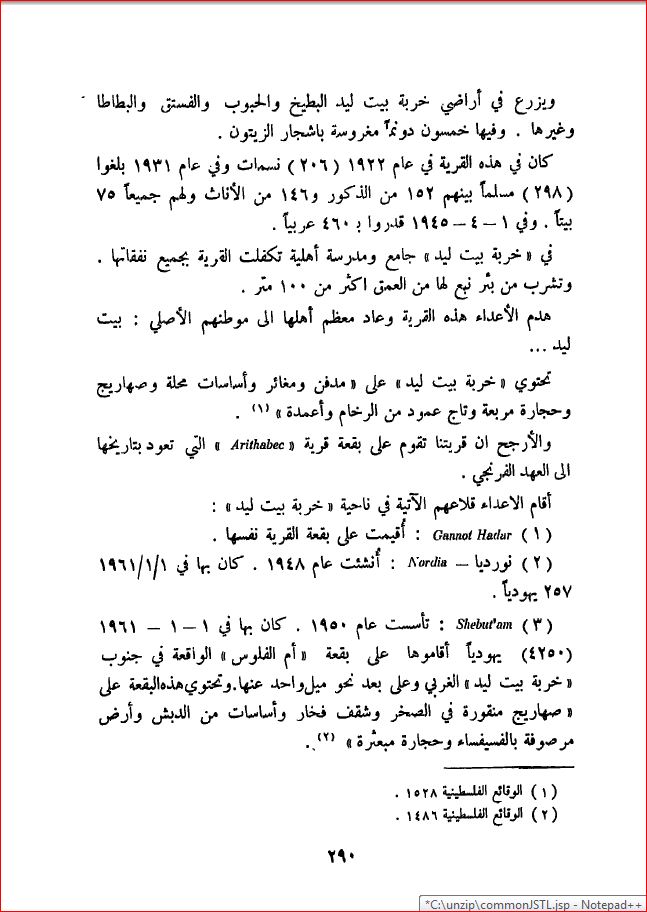 ويزرع في أراضي خربة بيت ليد البطيخ والحبوب والفستق والبطاطا
وغيرها . وفيها خمسون دونماً مغروسة باشجار الزيتون .
كان في هذه القرية في عام ١٩٢٢ (٢٠٦) نسمات وفي عام ١٩٣١ بلغوا
(٢٩٨) مسلماً بينهم ١٥٢ من الذكور و١٤٦ من الأناث ولهم جميعاً ٧٥
بيتاً . وفي ١ – ٤ – ١٩٤٥ قدروا بـ ٤٦٠ عربياً .
في «خربة بيت ليد» جامع ومدرسة أهلية تكفلت القرية بجميع نفقاتها .
وتشرب من بئر نبع لها من العمق اكثر من ١٠٠ متر .
هدم الأعداء هذه القرية وعاد معظم أهلها الى موطنهم الأصلي : بيت
ليد ...
تحتوي «خربة بيت ليد» على «مدفن ومغائر وأساسات محلة وصهاريج
وحجارة مربعة وتاج عمود من الرخام وأعمدة» (١) .
والأرجح ان قريتنا تقوم على بقعة قرية «Arithabec» التي تعود بتاريخها
الى العهد الفرنجي .
أقام الاعداء قلاعهم الآتية في ناحية «خربة بيت ليد» :
(١) Gannot Hadar : أُقيمت على بقعة القرية نفسها .
(٢) نورديا – Nordia : أُنشئت عام ١٩٤٨ . كان بها في ١/١/١٩٦١
٢٥٧ يهودياً .
(٣) Shebut'am : تأسست عام ١٩٥٠ . كان بها في ١ – ١ – ١٩٦١
(٤٢٥٠) يهودياً أقاموها على بقعة «أم الفلوس» الواقعة في جنوب
«خربة بيت ليد» الغربي وعلى بعد نحو ميل واحد عنها. وتحتوي هذه البقعة على
«صهاريج منقورة في الصخر وشقف فخار وأساسات من الدبش وأرض
مرصوفة بالفسيفساء وحجارة مبعثرة» (٢) .
(١) الوقائع الفلسطينية ١٥٢٨ .
(٢) الوقائع الفلسطينية ١٤٨٦ .
٢٩٠
*C:\unzip\commonJSTL.jsp - Notepad++